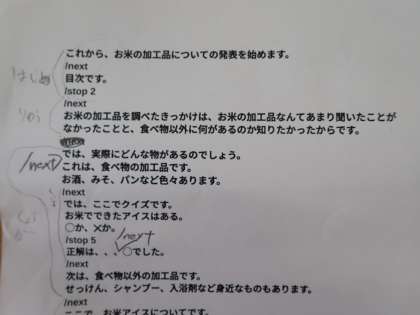 これから、お米の加工品についての発表を始めます。
/next
目次です。
/stop 2
/next
お米の加工品を調べたきっかけは、お米の加工品なんてあまり聞いたことが
なかったことと、食べ物以外に何があるのか知りたかったからです。
/next
では、実際にどんな物があるのでしょう。
これは、食べ物の加工品です。
お酒、みそ、パンなど色々あります。
/next
では、ここでクイズです。
お米でできたアイスはある。
○か、×か。
/stop 5
/next
正解は、、、○でした。
/next
次は、食べ物以外の加工品です。
せっけん、シャンプー、入浴剤など身近なものもあります。
/next
ここで、お米アイスについてです。
はじめ